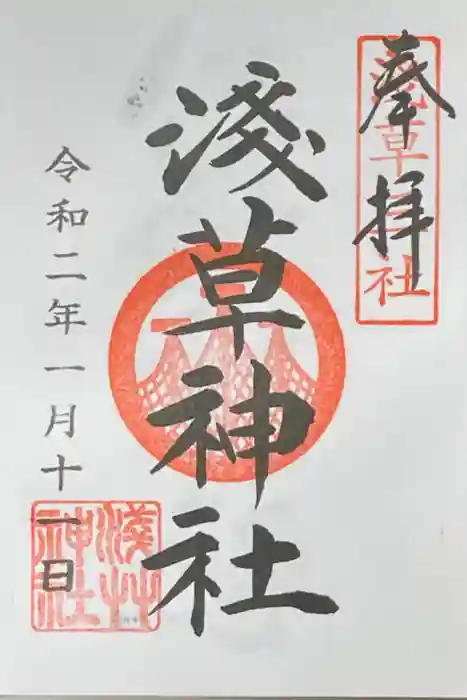 奉拝
淺草神社
淺草神社
令和二年一月十一日
淺草神社